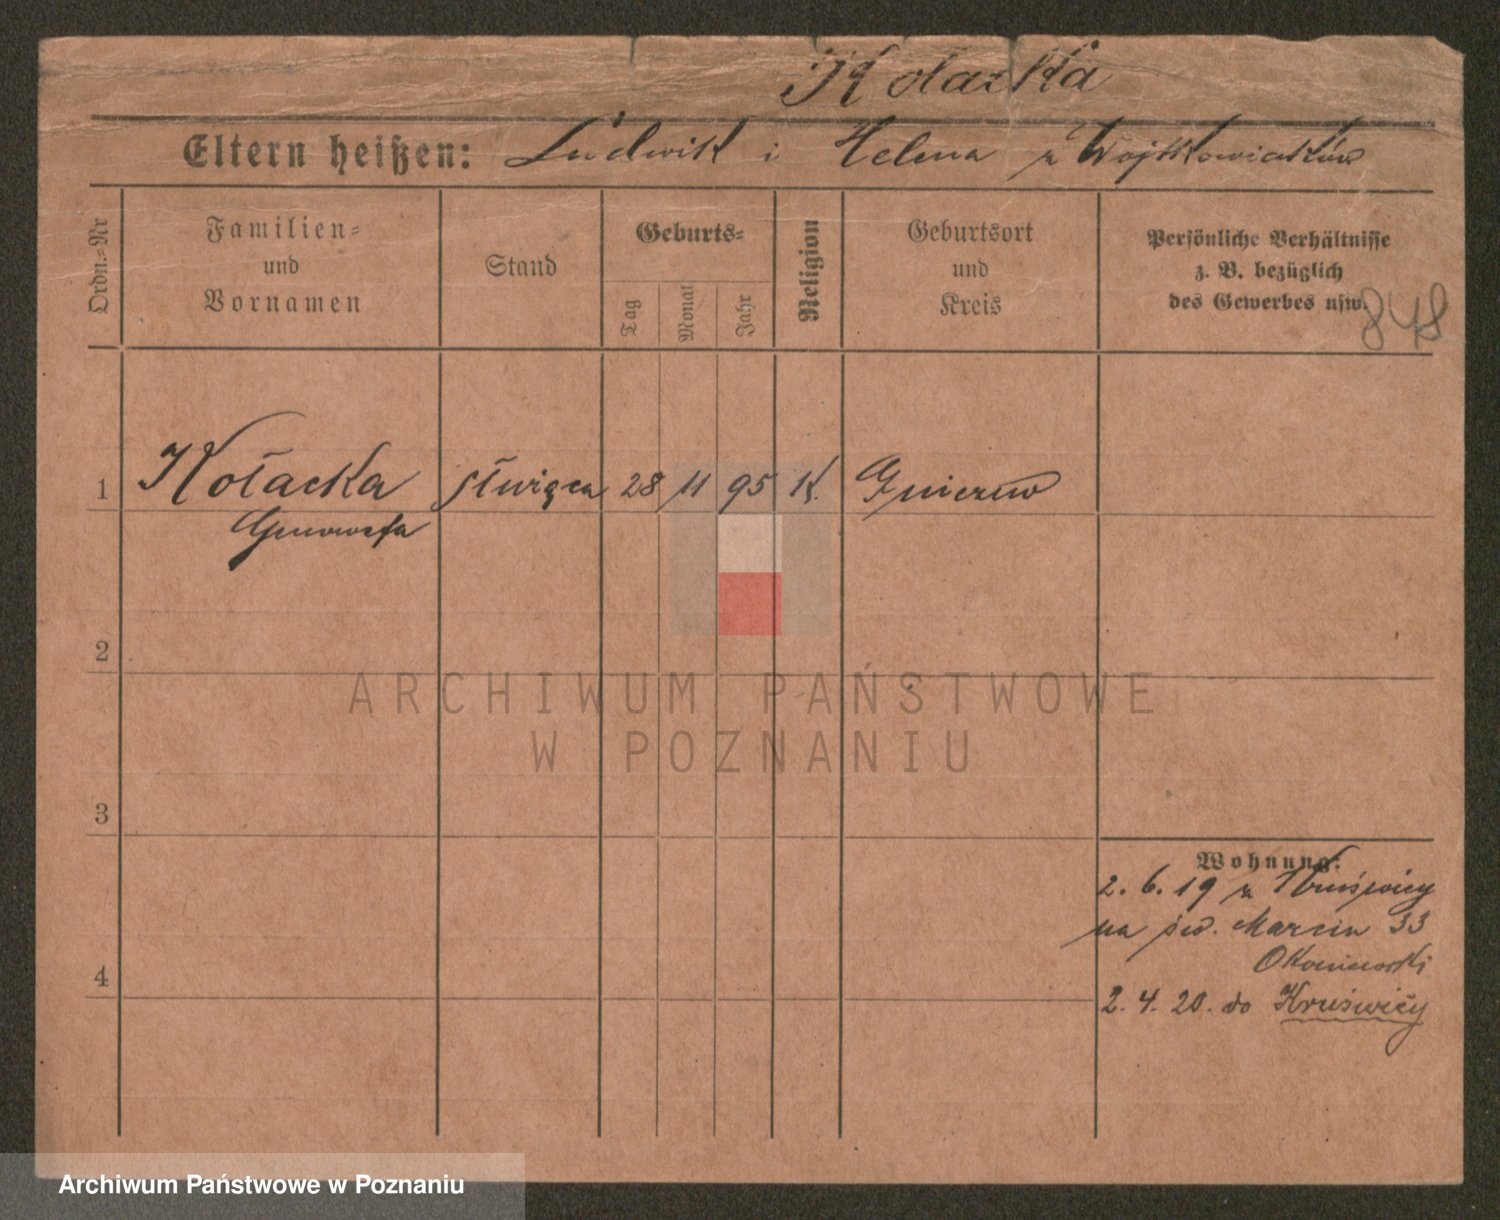 Kołacka
Eltern heißen: Ludwik i Helena z Wojtkowiaków
Ordn.-Nr
Familien-
und
Vornamen
Stand
Geburts-
Tag
Monat
Jahr
Religion
Geburtsort
und
Kreis
Persönliche Verhältnisse
z. B. bezüglich
des Gewerbes usw.
848
1 Kołacka służąca 28 11 95 K.
Genowefa
2
3
4
Wohnung:
2. 6. 19 z Kruświcy
na św. Marcin 33
2. 4. 20. do Kruświcy
ARCHIWUM PAŃSTWOWE
W POZNANIU
Archiwum Państwowe w Poznaniu